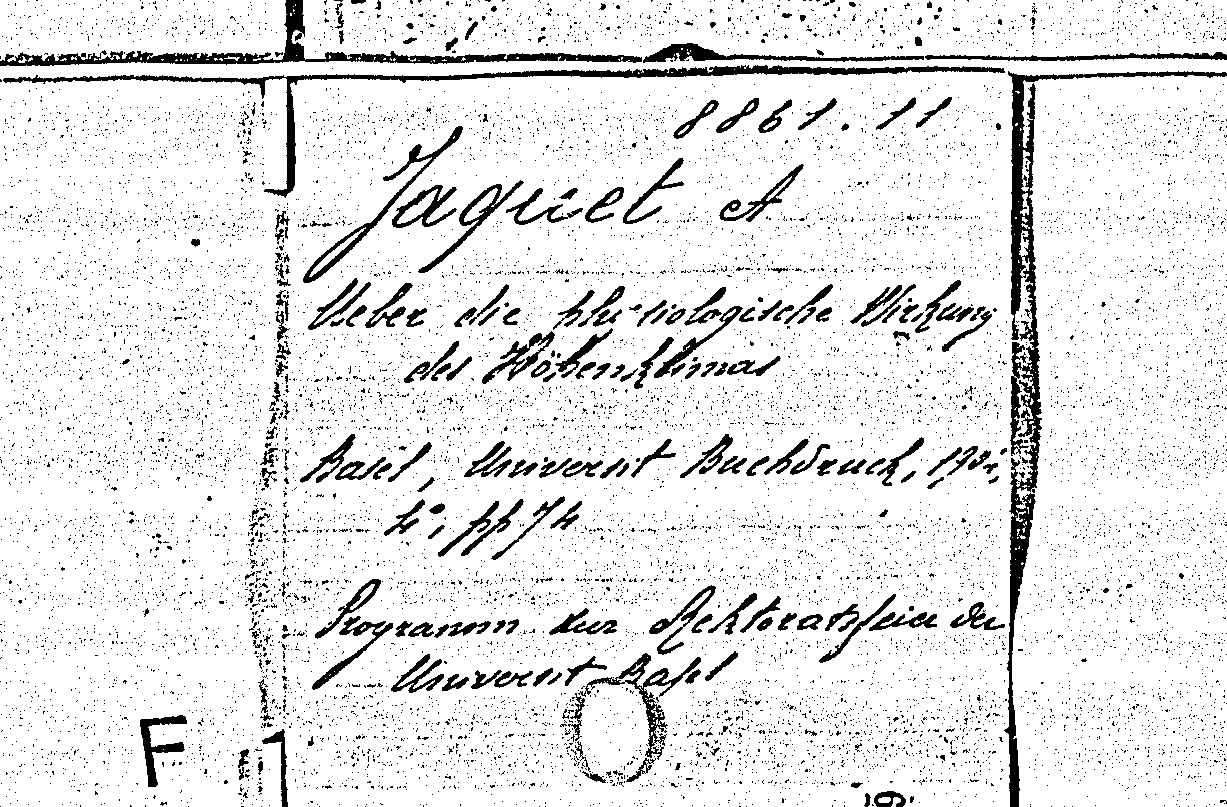 8861.11
Jaquet A
Ueber die physiologische Wirkung
des Höhenklimas
Basel, Universit Buchdruck,
4°, pp 74
Programm zur Rektoratsfeier der
Universit Basel
F